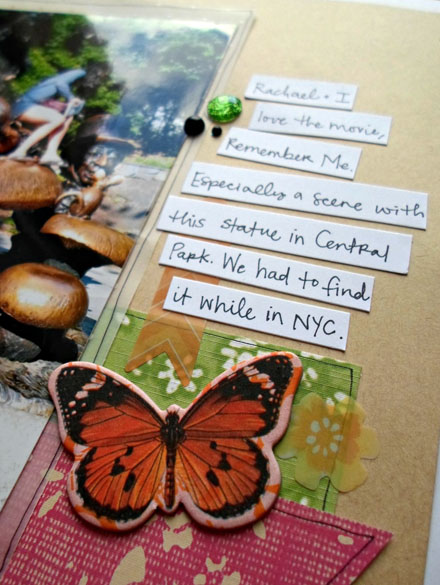 Rachael + I
love the movie,
Remember Me.
Especially a scene with
this statue in Central
Park. We had to find
it while in NYC.